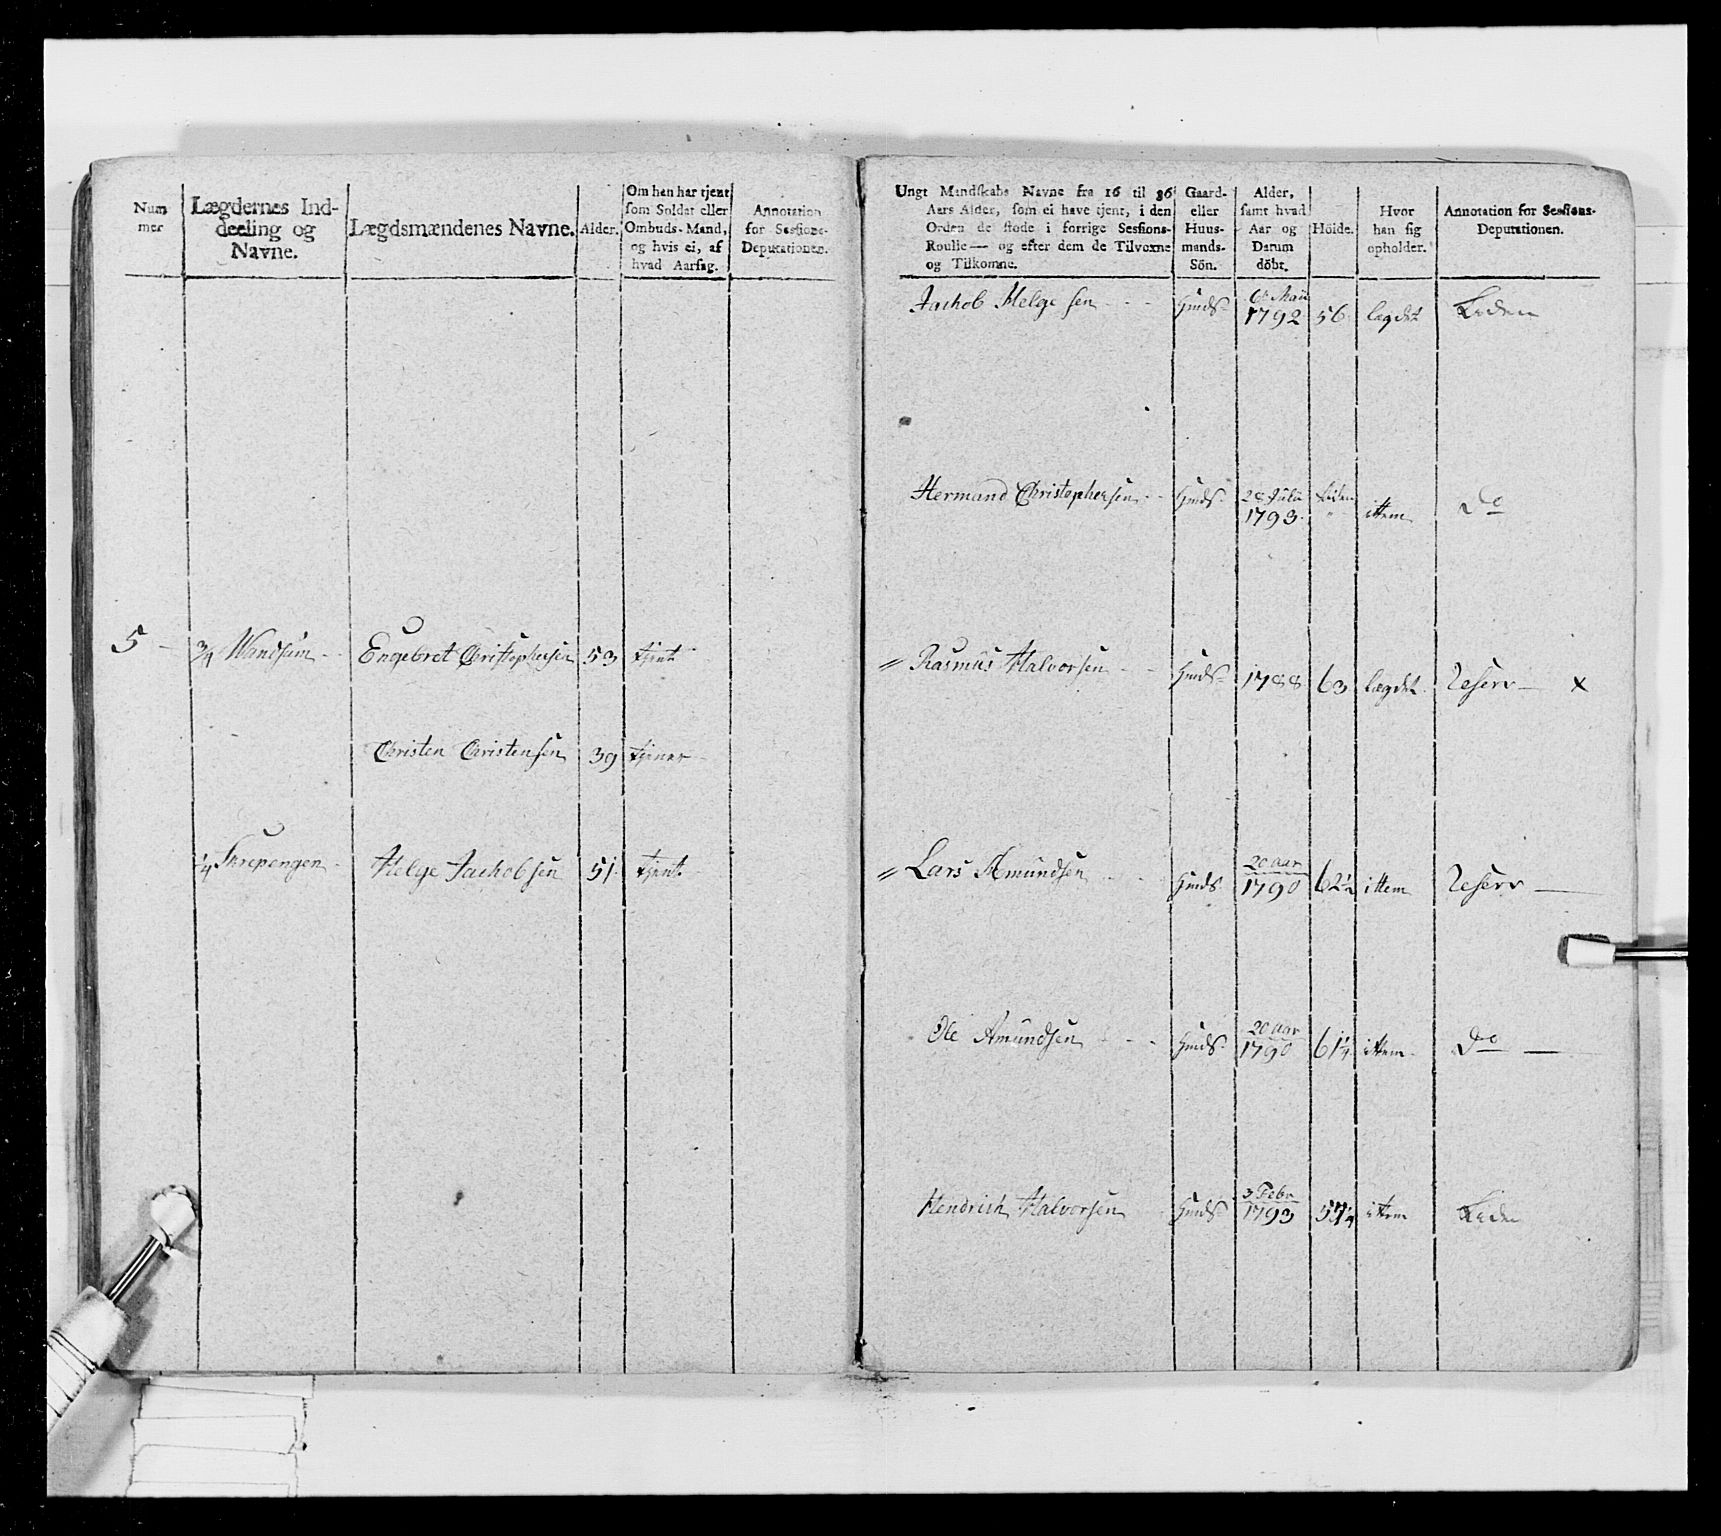 Num
mer
Lægdernes Ind-
deeling og
Navne.
Lægdsmændenes Navne.
Alder.
Om han har tjent
som Soldat eller
Ombuds-Mand,
og hvis ei, af
hvad Aarsag.
Annotation
for Sessions-
Deputationen.
5 3/4 Wandsum Engebret Christophersen 53 tjent
Christen Christensen 39 tjener
1/4 Skrepengen Helge Jachobsen 51 tjent
Ungt Mandskabs Navne fra 16 til 36
Aars Alder, som ei have tjent, i den
Orden de stode i forrige Sessions-
Roulle — og efter dem de Tilvoxne
og Tilkomne.
Gaard-
eller
Huus-
mands-
Sön.
Alder,
samt hvad
Aar og
Datum
döbt.
Höide.
Hvor
han sig
opholder.
Annotation for Sessions-
Deputationen.
Jachob Helgesen 6te Maii 1792 56 lægdet Liden
Hermand Christophersen 28 Julii 1793 liden ittem Do
Rasmus Halvorsen 1788 63 lægdet Reserv x
Lars Amundsen 20 aar 1790 62½ ittem Reserv
Ole Amundsen 20 aar 1790 61¼ ittem Do
Hendrich Halvorsen 3 Febr 1793 57¼ ittem Liden